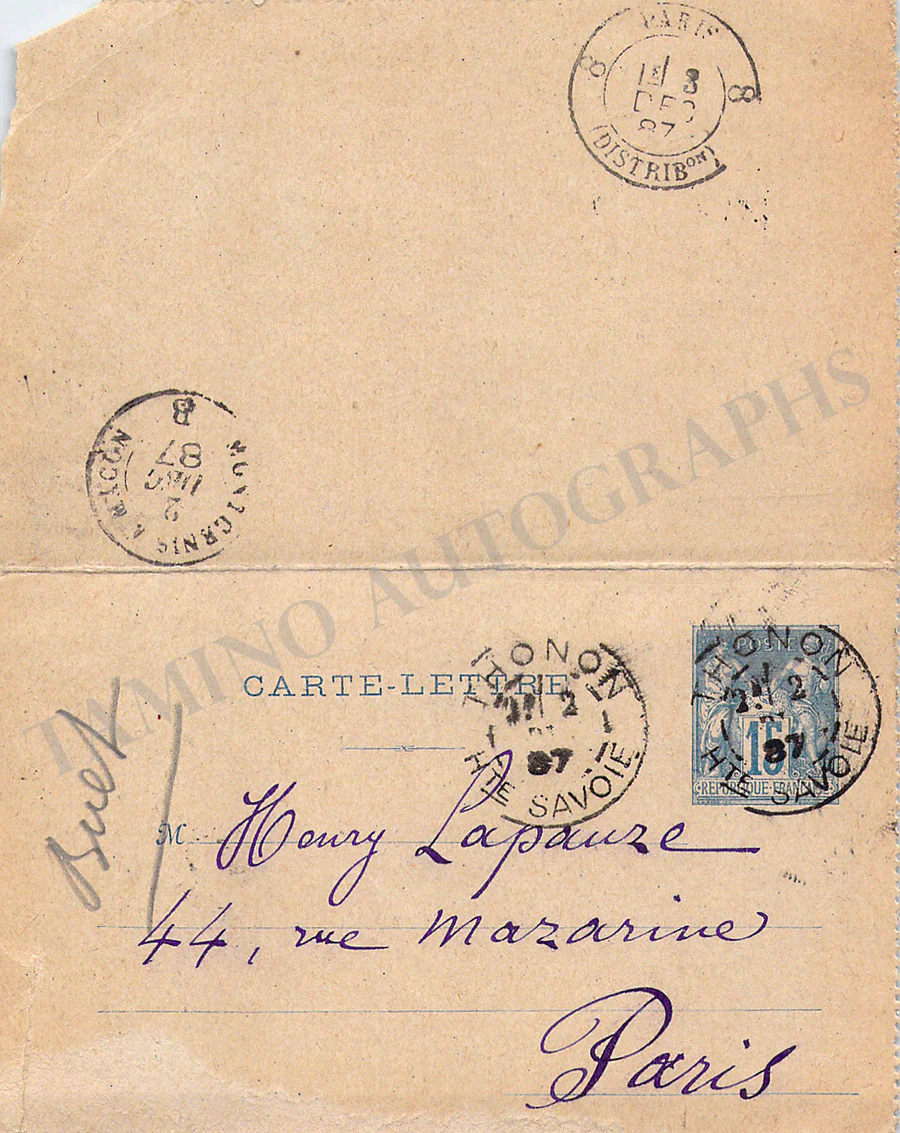 PARIS
8 8
1E 3
DEC
87
(DISTRIBon)
B
87
DEC
2
TAMINO AUTOGRAPHS
CARTE-LETTRE
THONON
2
87
HTE SAVOIE
POSTE
15
REPUBLIQUE FRANÇAISE
THONON
2
87
HTE SAVOIE
Buet
M Henry Lapauze
44, rue Mazarine
Paris